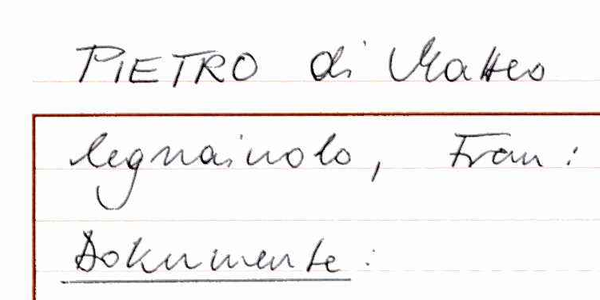 PIETRO di Matteo
legnaiuolo, Frau:
Dokumente: